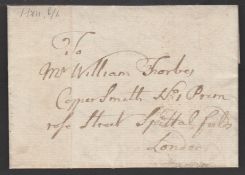 To
Mr William Forbes
Copper Smith No 1 Prim
rose Street Spittal fields
London